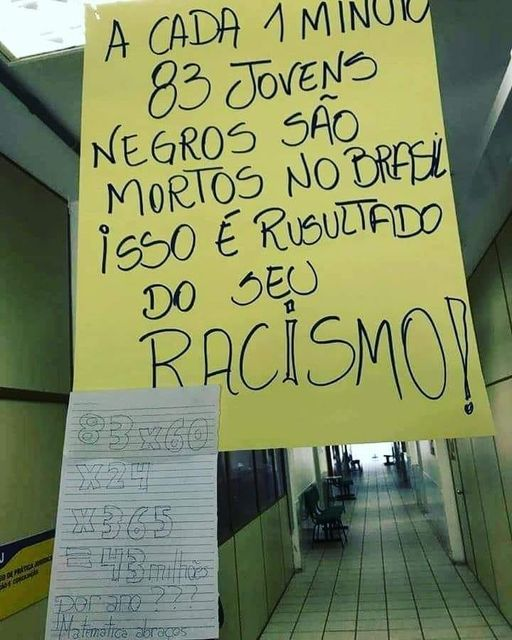 A CADA 1 MINUTO
83 JOVENS
NEGROS SÃO
MORTOS NO BRASIL
ISSO É RUSULTADO
DO SEU
RACISMO!
83x60
x24
x365
=43 milhões
por ano ???
Matemática abraços
DE PRÁTICA